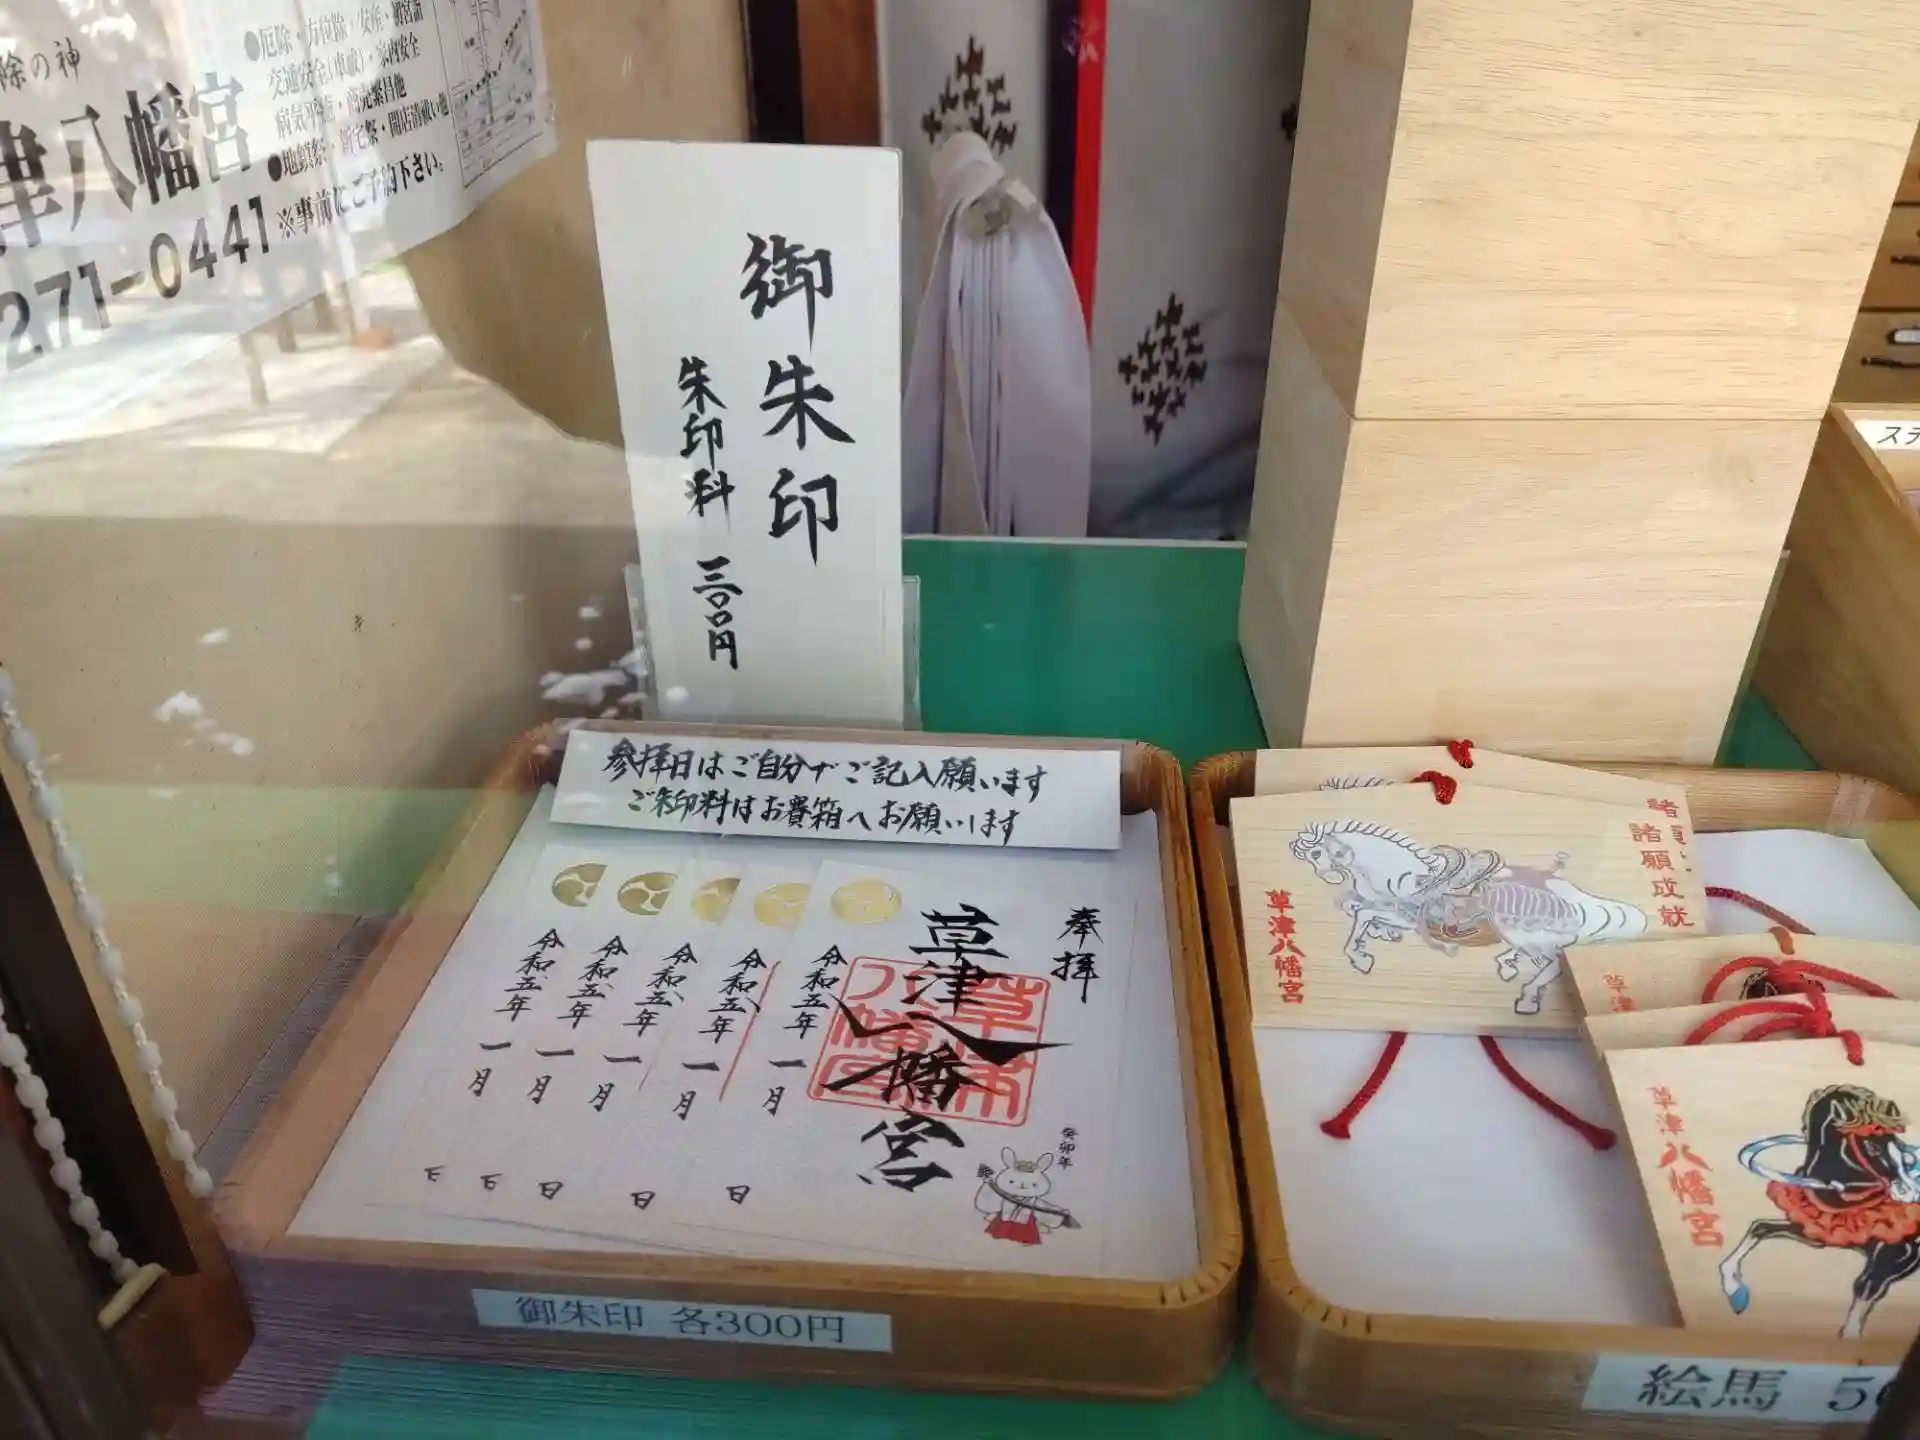 除の神
津八幡宮
271-0441
●厄除・方位除・安産・初宮詣
交通安全(車祓)・家内安全
病気平癒・商売繁昌他
●地鎮祭・新宅祭・開店清祓い他
※事前にご予約下さい。
御朱印
朱印料 三〇〇円
参拝日はご自分でご記入願います
ご朱印料はお賽箱へお願いします
奉拝
草津八幡宮
草津八幡宮
癸卯年
令和五年 一月 日
令和五年 一月 日
令和五年 一月 日
令和五年 一月 日
令和五年 一月 日
御朱印 各300円
諸願成就
草津八幡宮
草津
草津八幡宮
絵馬 5
ステ